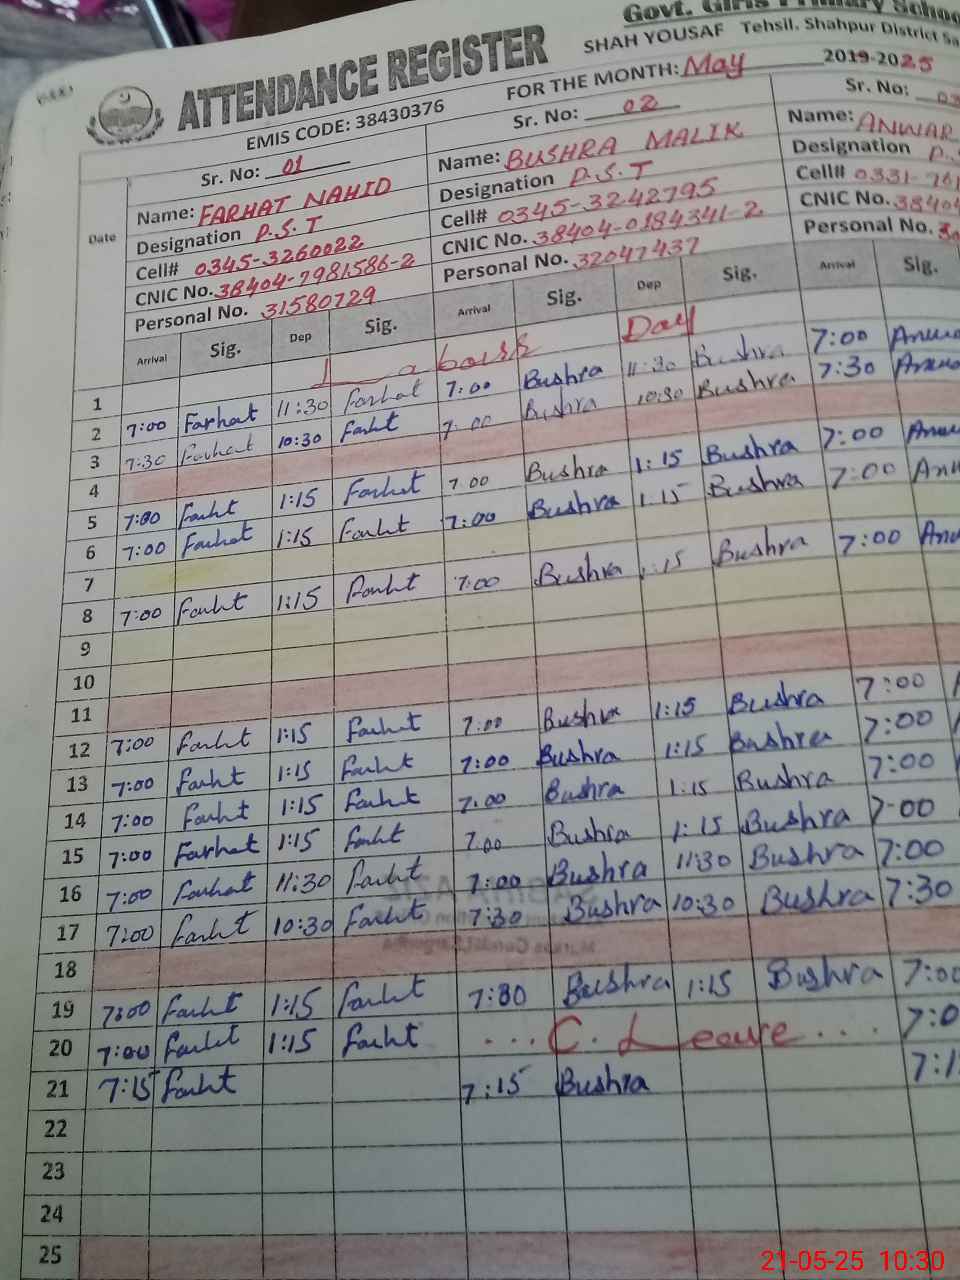 Govt. Girls Primary School
SHAH YOUSAF Tehsil. Shahpur District Sa
ATTENDANCE REGISTER
EMIS CODE: 38430376
FOR THE MONTH: May 2019-2025
Date
Sr. No: 01
Name: FARHAT NAHID
Designation P.S.T
Cell# 0345-3260022
CNIC No. 38404-7981586-2
Personal No. 31580729
Sr. No: 02
Name: BUSHRA MALIK
Designation P.S.T
Cell# 0345-3242795
CNIC No. 38404-0184341-2
Personal No. 32047437
Sr. No: 03
Name: ANWAR
Designation P.
Cell# 0331-761
CNIC No. 38404
Personal No.
Arrival Sig. Dep Sig. Arrival Sig. Dep Sig. Arrival Sig.
1 Labour Day
2 7:00 Farhat 11:30 Farhat 7:00 Bushra 11:30 Bushra 7:00
3 7:30 Farhat 10:30 Farht 7:00 Bushra 10:30 Bushra 7:30
4
5 7:00 Farht 1:15 Farhat 7:00 Bushra 1:15 Bushra 7:00
6 7:00 Farhat 1:15 Farht 7:00 Bushra 1:15 Bushra 7:00
7
8 7:00 Farht 1:15 Farht 7:00 Bushra 1:15 Bushra 7:00
9
10
11
12 7:00 Farht 1:15 Farht 7:00 Bushra 1:15 Bushra 7:00
13 7:00 Farht 1:15 Farht 7:00 Bushra 1:15 Bushra 7:00
14 7:00 Farht 1:15 Farht 7:00 Bushra 1:15 Bushra 7:00
15 7:00 Farhat 1:15 Farht 7:00 Bushra 1:15 Bushra 7:00
16 7:00 Farhat 11:30 Farht 7:00 Bushra 11:30 Bushra 7:00
17 7:00 Farht 10:30 Farht 7:30 Bushra 10:30 Bushra 7:30
18
19 7:00 Farht 1:15 Farht 7:00 Bushra 1:15 Bushra 7:00
20 7:00 Farht 1:15 Farht ... C. Leave ... 7:0
21 7:15 Farht 7:15 Bushra 7:1
22
23
24
25
21-05-25 10:30